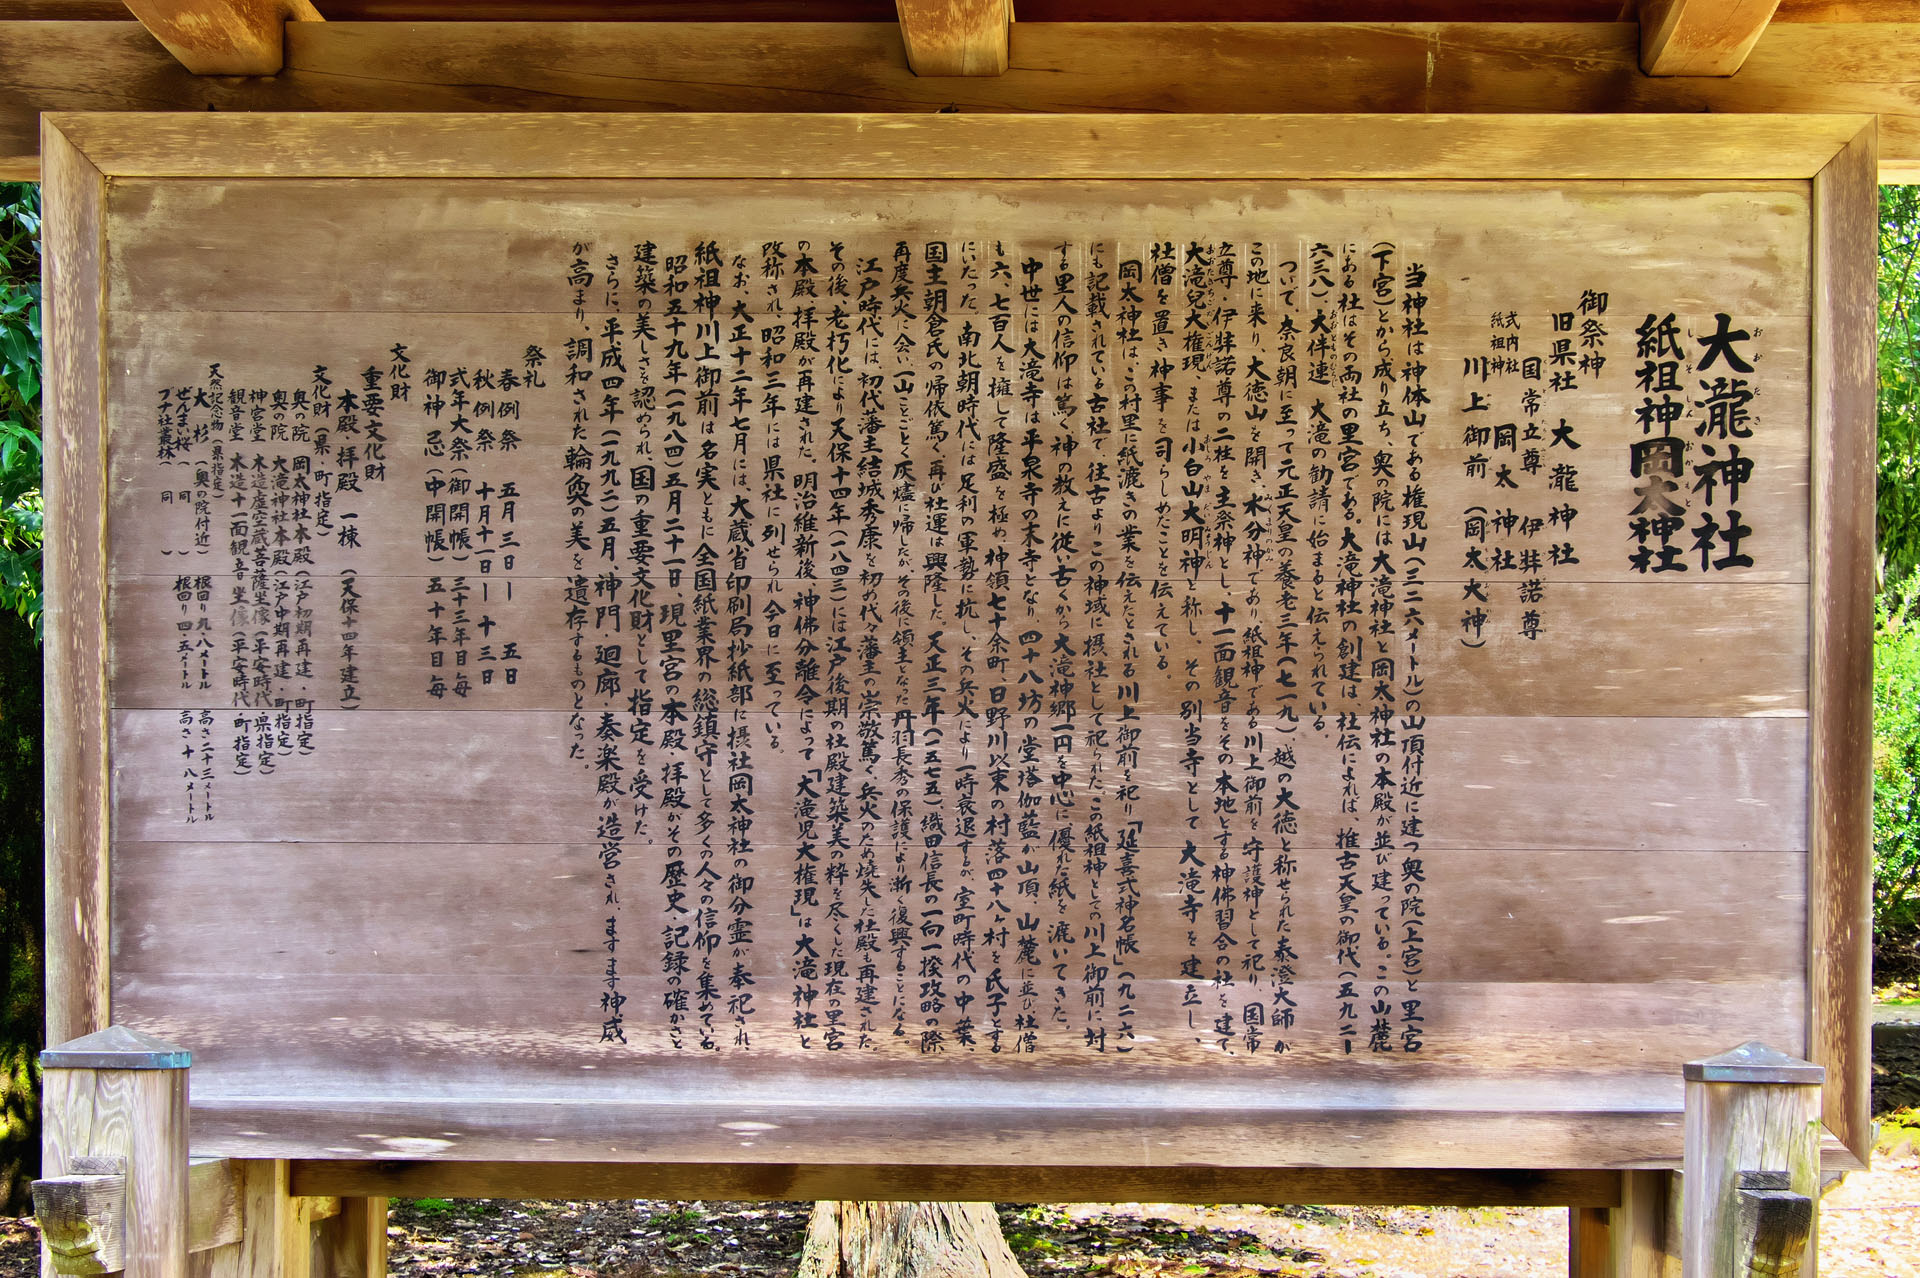 大瀧神社
紙祖神岡太神社
御祭神
旧県社 大瀧神社
国常立尊 伊弉諾尊
式内社 紙祖神 岡太神社
川上御前(岡太大神)
当神社は神体山である権現山(三二六メートル)の山頂付近に建つ奥の院(上宮)と里宮
(下宮)とから成り立ち、奥の院には大滝神社と岡太神社の本殿が並び建っている。この山麓
にある社はその両社の里宮である。大滝神社の創建は、社伝によれば、推古天皇の御代(五九二ー
六三八)、大伴連大滝の勧請に始まると伝えられている。
ついで、奈良朝に至って元正天皇の養老三年(七一九)越の大徳と称せられた泰澄大師が
この地に来り、大徳山を開き、水分神であり、紙祖神である川上御前を守護神として祀り、国常
立尊・伊弉諾尊の二柱を主祭神とし、十一面観音をその本地とする神佛習合の社を建て、
大滝兒大権現または小白山大明神と称し、その別当寺として大滝寺を建立し、
社僧を置き神事を司らしめたことを伝えている。
岡太神社は、この村里に紙漉きの業を伝えたとされる川上御前を祀り「延喜式神名帳」(九二六)
にも記載されている古社で、往古よりこの神域に摂社として祀られた。この紙祖神としての川上御前に対
する里人の信仰は篤く、神の教えに従い古くから大滝神郷一円を中心に優れた紙を漉いてきた。
中世には大滝寺は平泉寺の末寺となり、四十八坊の堂塔伽藍が山頂、山麓に並び社僧
も六、七百人を擁して隆盛を極め、神領七十余町、日野川以東の村落四十八ヶ村を氏子とする
にいたった。南北朝時代には足利の軍勢に抗し、その兵火により一時衰退するが、室町時代の中葉、
国主朝倉氏の帰依篤く、再び社運は興隆した。天正三年(一五七五)、織田信長の一向一揆攻略の際
再度兵火に会い、一山ことごとく灰燼に帰したが、その後に領主となった丹羽長秀の保護により漸く復興することになる。
江戸時代には、初代藩主結城秀康を初め代々藩主の崇敬篤く、兵火のため焼失した社殿も再建された。
その後、老朽化により天保十四年(一八四三)には江戸後期の社殿建築美の粋を尽くした現在の里宮
の本殿、拝殿が再建された。明治維新後、神佛分離令によって「大滝児大権現」は大滝神社と
改称され、昭和三年には県社に列せられ今日に至っている。
なお、大正十二年七月には、大蔵省印刷局抄紙部に摂社岡太神社の御分霊が奉祀され、
紙祖神川上御前は名実ともに全国紙業界の総鎮守として多くの人々の信仰を集めている。
昭和五十九年(一九八四)五月二十一日、現里宮の本殿、拝殿がその歴史、記録の確かさと
建築の美しさを認められ、国の重要文化財として指定を受けた。
さらに、平成四年(一九九二)五月、神門・廻廊・奏楽殿が造営され、ますます神威
が高まり、調和された輪奐の美を遺存するものとなった。
祭礼
春例祭 五月三日ー五日
秋例祭 十月十一日ー十三日
式年大祭(御開帳)三十三年目毎
御神忌(中開帳)五十年目毎
文化財
重要文化財
本殿・拝殿 一棟(天保十四年建立)
文化財(県・町指定)
奥の院 岡太神社本殿(江戸初期再建・町指定)
奥の院 大滝神社本殿(江戸中期再建・町指定)
神宮堂 木造虚空蔵菩薩坐像(平安時代・県指定)
観音堂 木造十一面観音坐像(平安時代・町指定)
天然記念物(県指定)
大杉(奥の院付近) 根回り九・八メートル 高さ二十三メートル
ぜんまい桜(同) 根回り四・五メートル 高さ十八メートル
ブナ社叢林(同)